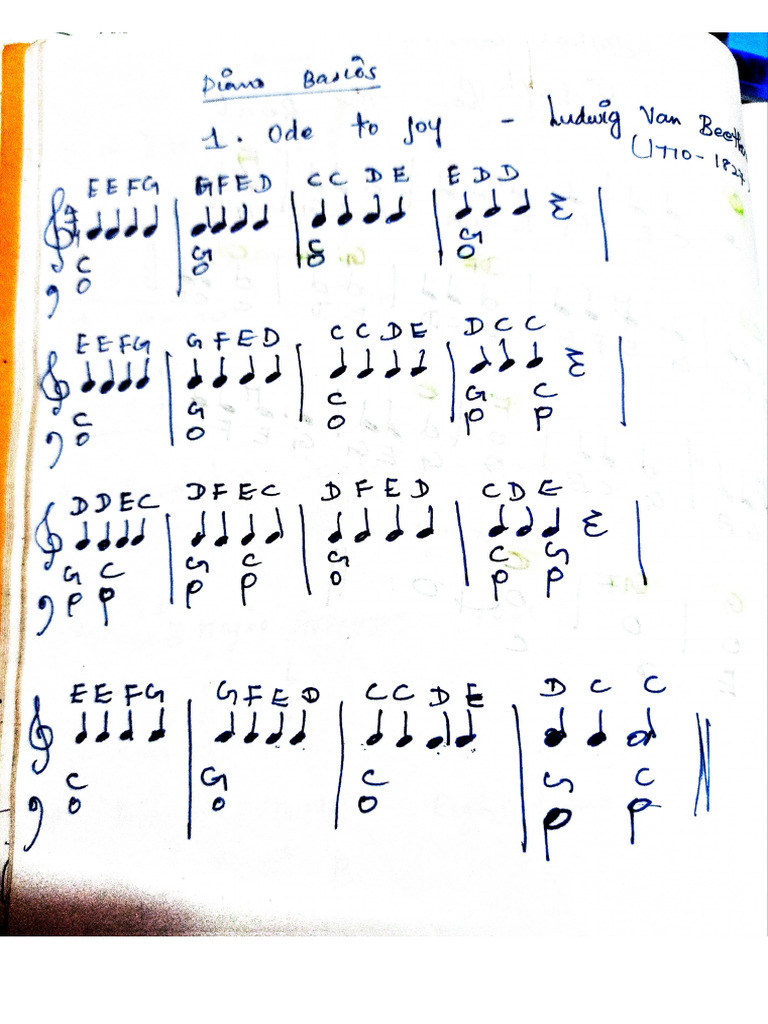 Piano Basics
1. Ode to Joy - Ludwig Van
(1770-1827)
E E F G G F E D C C D E E D D
4/4
C G G
E E F G G F E D C C D E D C C
C G C G C
D D E C D F E C D F E D C D E
G C G C G C G
E E F G G F E D C C D E D C C
C G C G C